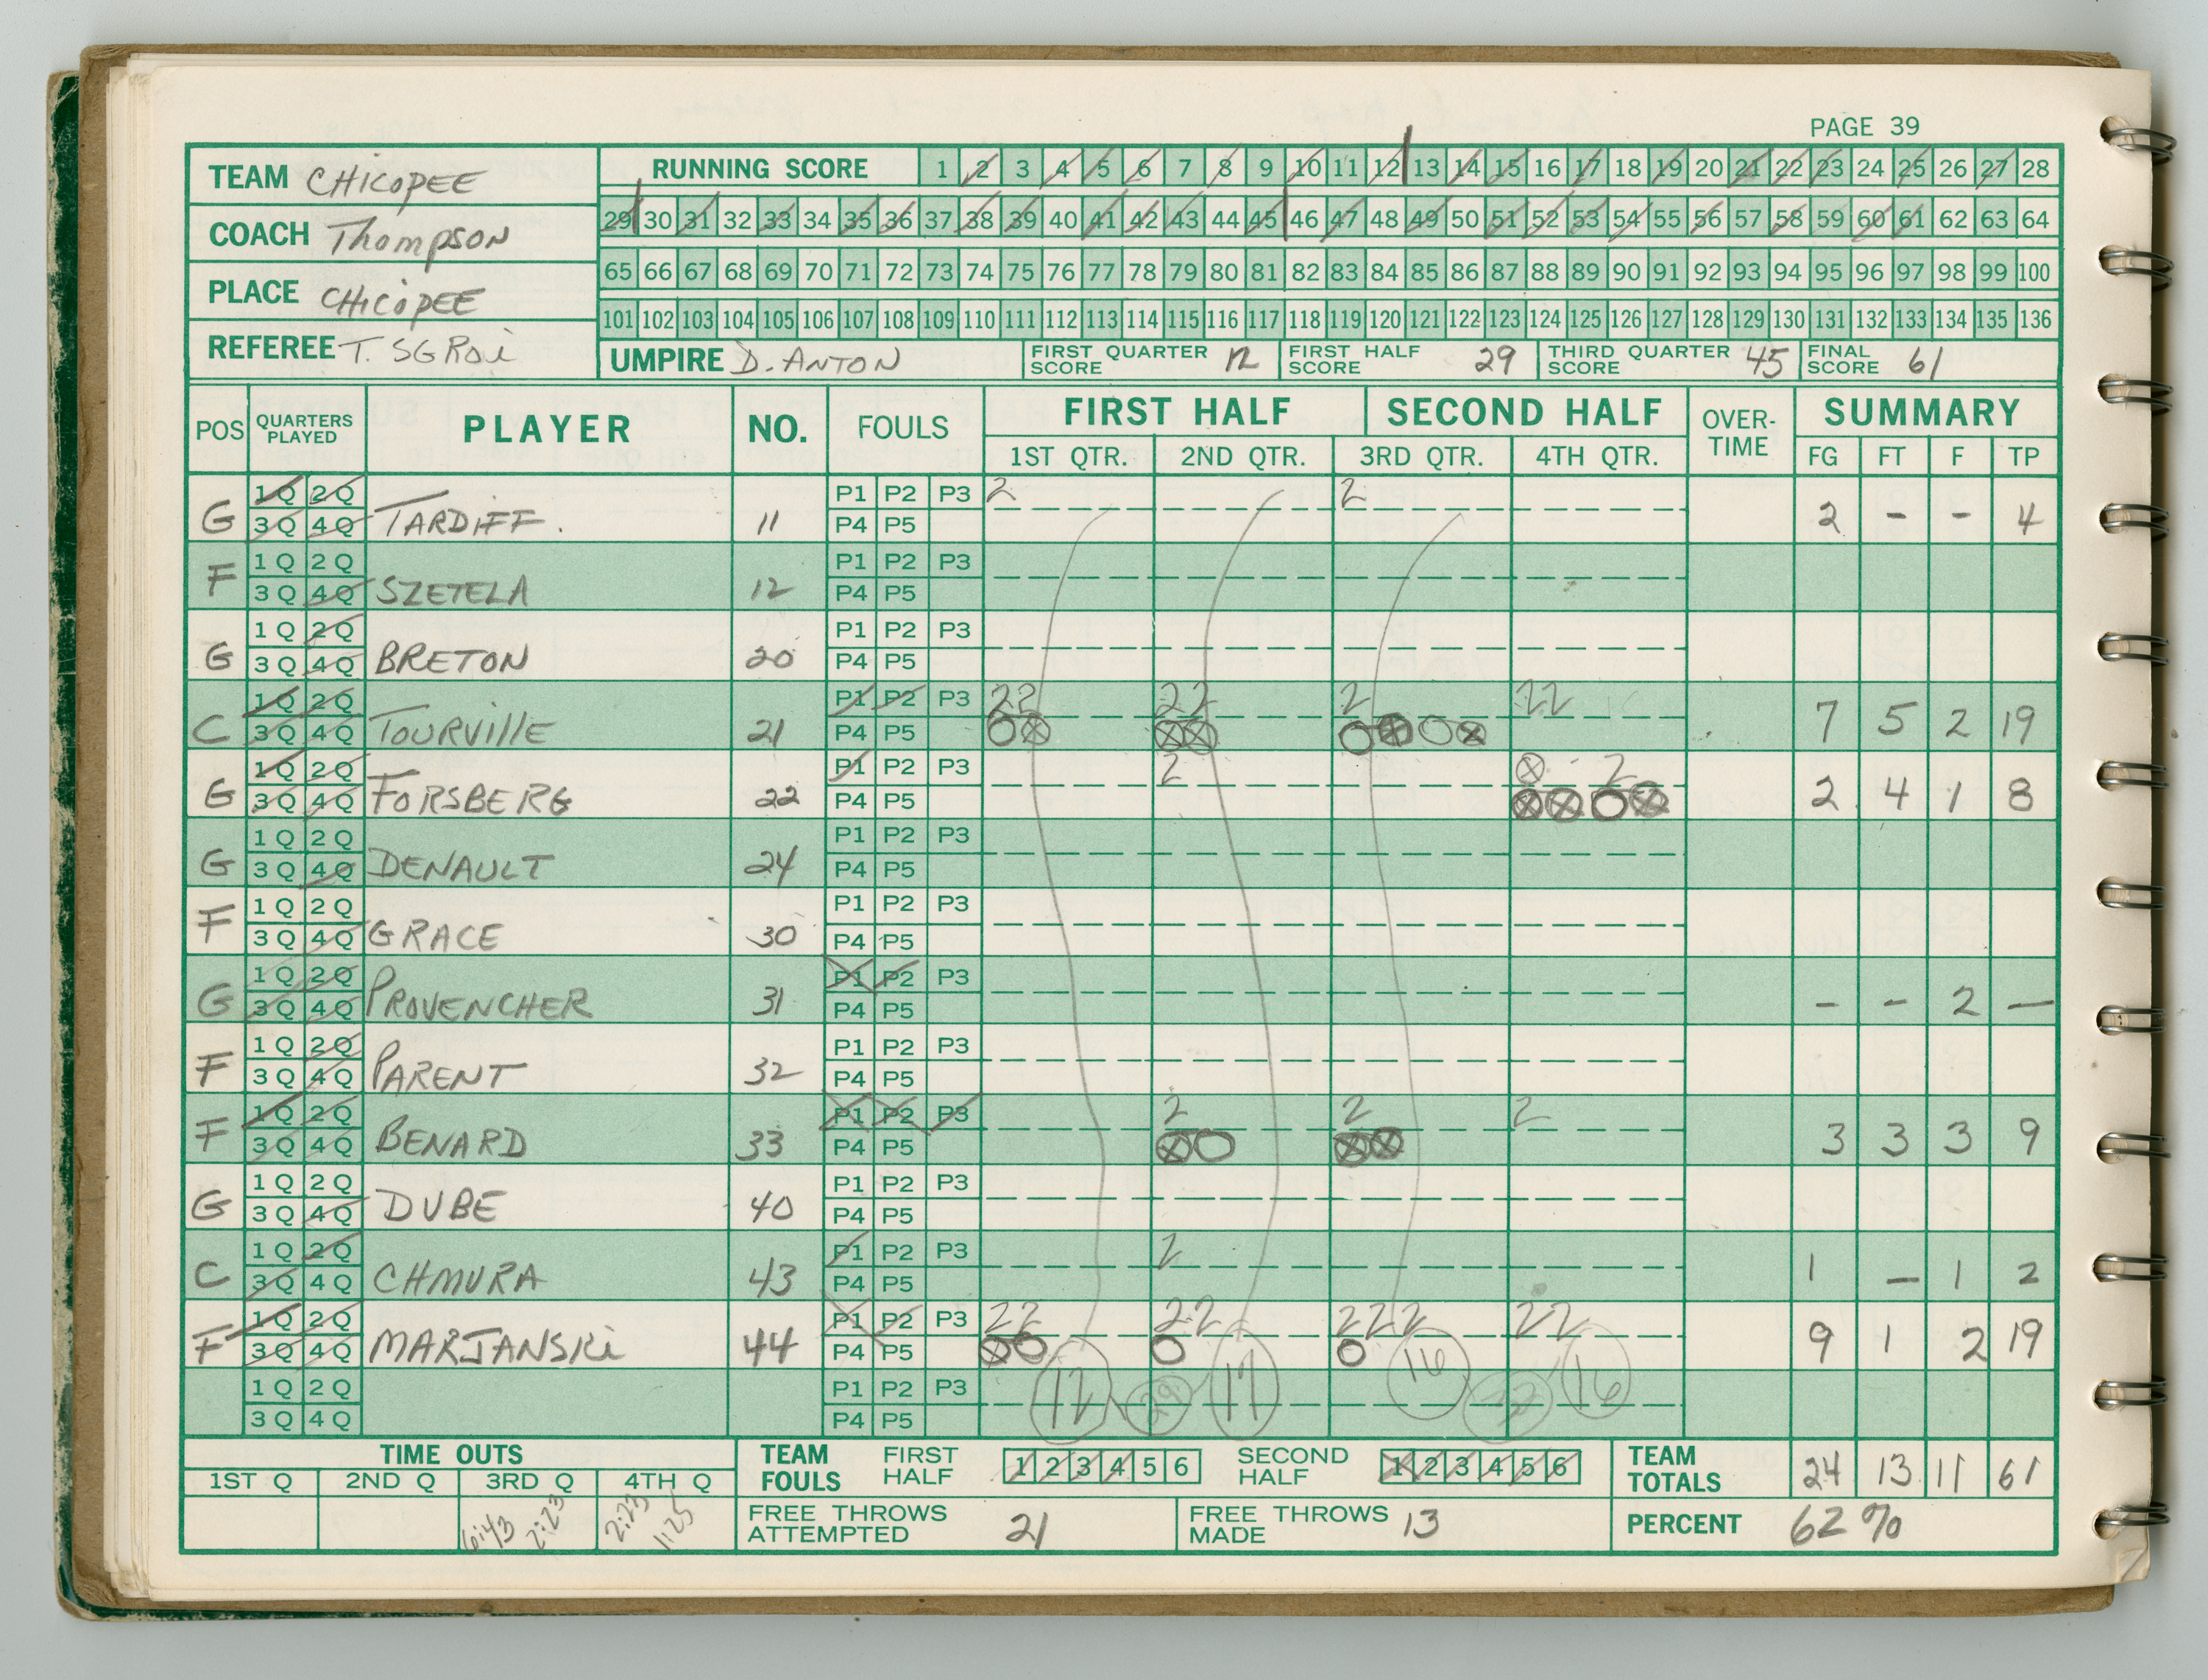 PAGE 39
TEAM CHICOPEE
COACH Thompson
PLACE CHICOPEE
REFEREE T. SGROi
RUNNING SCORE 1 2 3 4 5 6 7 8 9 10 11 12 13 14 15 16 17 18 19 20 21 22 23 24 25 26 27 28
29 30 31 32 33 34 35 36 37 38 39 40 41 42 43 44 45 46 47 48 49 50 51 52 53 54 55 56 57 58 59 60 61 62 63 64
65 66 67 68 69 70 71 72 73 74 75 76 77 78 79 80 81 82 83 84 85 86 87 88 89 90 91 92 93 94 95 96 97 98 99 100
101 102 103 104 105 106 107 108 109 110 111 112 113 114 115 116 117 118 119 120 121 122 123 124 125 126 127 128 129 130 131 132 133 134 135 136
UMPIRE D. ANTON FIRST QUARTER SCORE 12 FIRST HALF SCORE 29 THIRD QUARTER SCORE 45 FINAL SCORE 61
POS QUARTERS PLAYED PLAYER NO. FOULS FIRST HALF SECOND HALF OVER-TIME SUMMARY
1ST QTR. 2ND QTR. 3RD QTR. 4TH QTR. FG FT F TP
1Q 2Q P1 P2 P3 2 2
G 3Q 4Q TARDIFF. 11 P4 P5 2 - - 4
1Q 2Q P1 P2 P3
F 3Q 4Q SZETELA 12 P4 P5
1Q 2Q P1 P2 P3
G 3Q 4Q BRETON 20 P4 P5
1Q 2Q P1 P2 P3 22 22 2 22
C 3Q 4Q TOURVIllE 21 P4 P5 7 5 2 19
1Q 2Q P1 P2 P3 2 2
G 3Q 4Q FORSBERG 22 P4 P5 2 4 1 8
1Q 2Q P1 P2 P3
G 3Q 4Q DENAULT 24 P4 P5
1Q 2Q P1 P2 P3
F 3Q 4Q GRACE 30 P4 P5
1Q 2Q P1 P2 P3
G 3Q 4Q PROVENCHER 31 P4 P5 - - 2 -
1Q 2Q P1 P2 P3
F 3Q 4Q PARENT 32 P4 P5
1Q 2Q P1 P2 P3 2 2 2
F 3Q 4Q BENARD 33 P4 P5 3 3 3 9
1Q 2Q P1 P2 P3
G 3Q 4Q DUBE 40 P4 P5
1Q 2Q P1 P2 P3 2
C 3Q 4Q CHMURA 43 P4 P5 1 - 1 2
1Q 2Q P1 P2 P3 22 22 222 22
F 3Q 4Q MARJANSKi 44 P4 P5 9 1 2 19
1Q 2Q P1 P2 P3 12 29 17 16 32 16
3Q 4Q P4 P5
TIME OUTS TEAM FOULS FIRST HALF 1 2 3 4 5 6 SECOND HALF 1 2 3 4 5 6 TEAM TOTALS 24 13 11 61
1ST Q 2ND Q 3RD Q 4TH Q
6:43 2:23 2:23 1:25 FREE THROWS ATTEMPTED 21 FREE THROWS MADE 13 PERCENT 62%